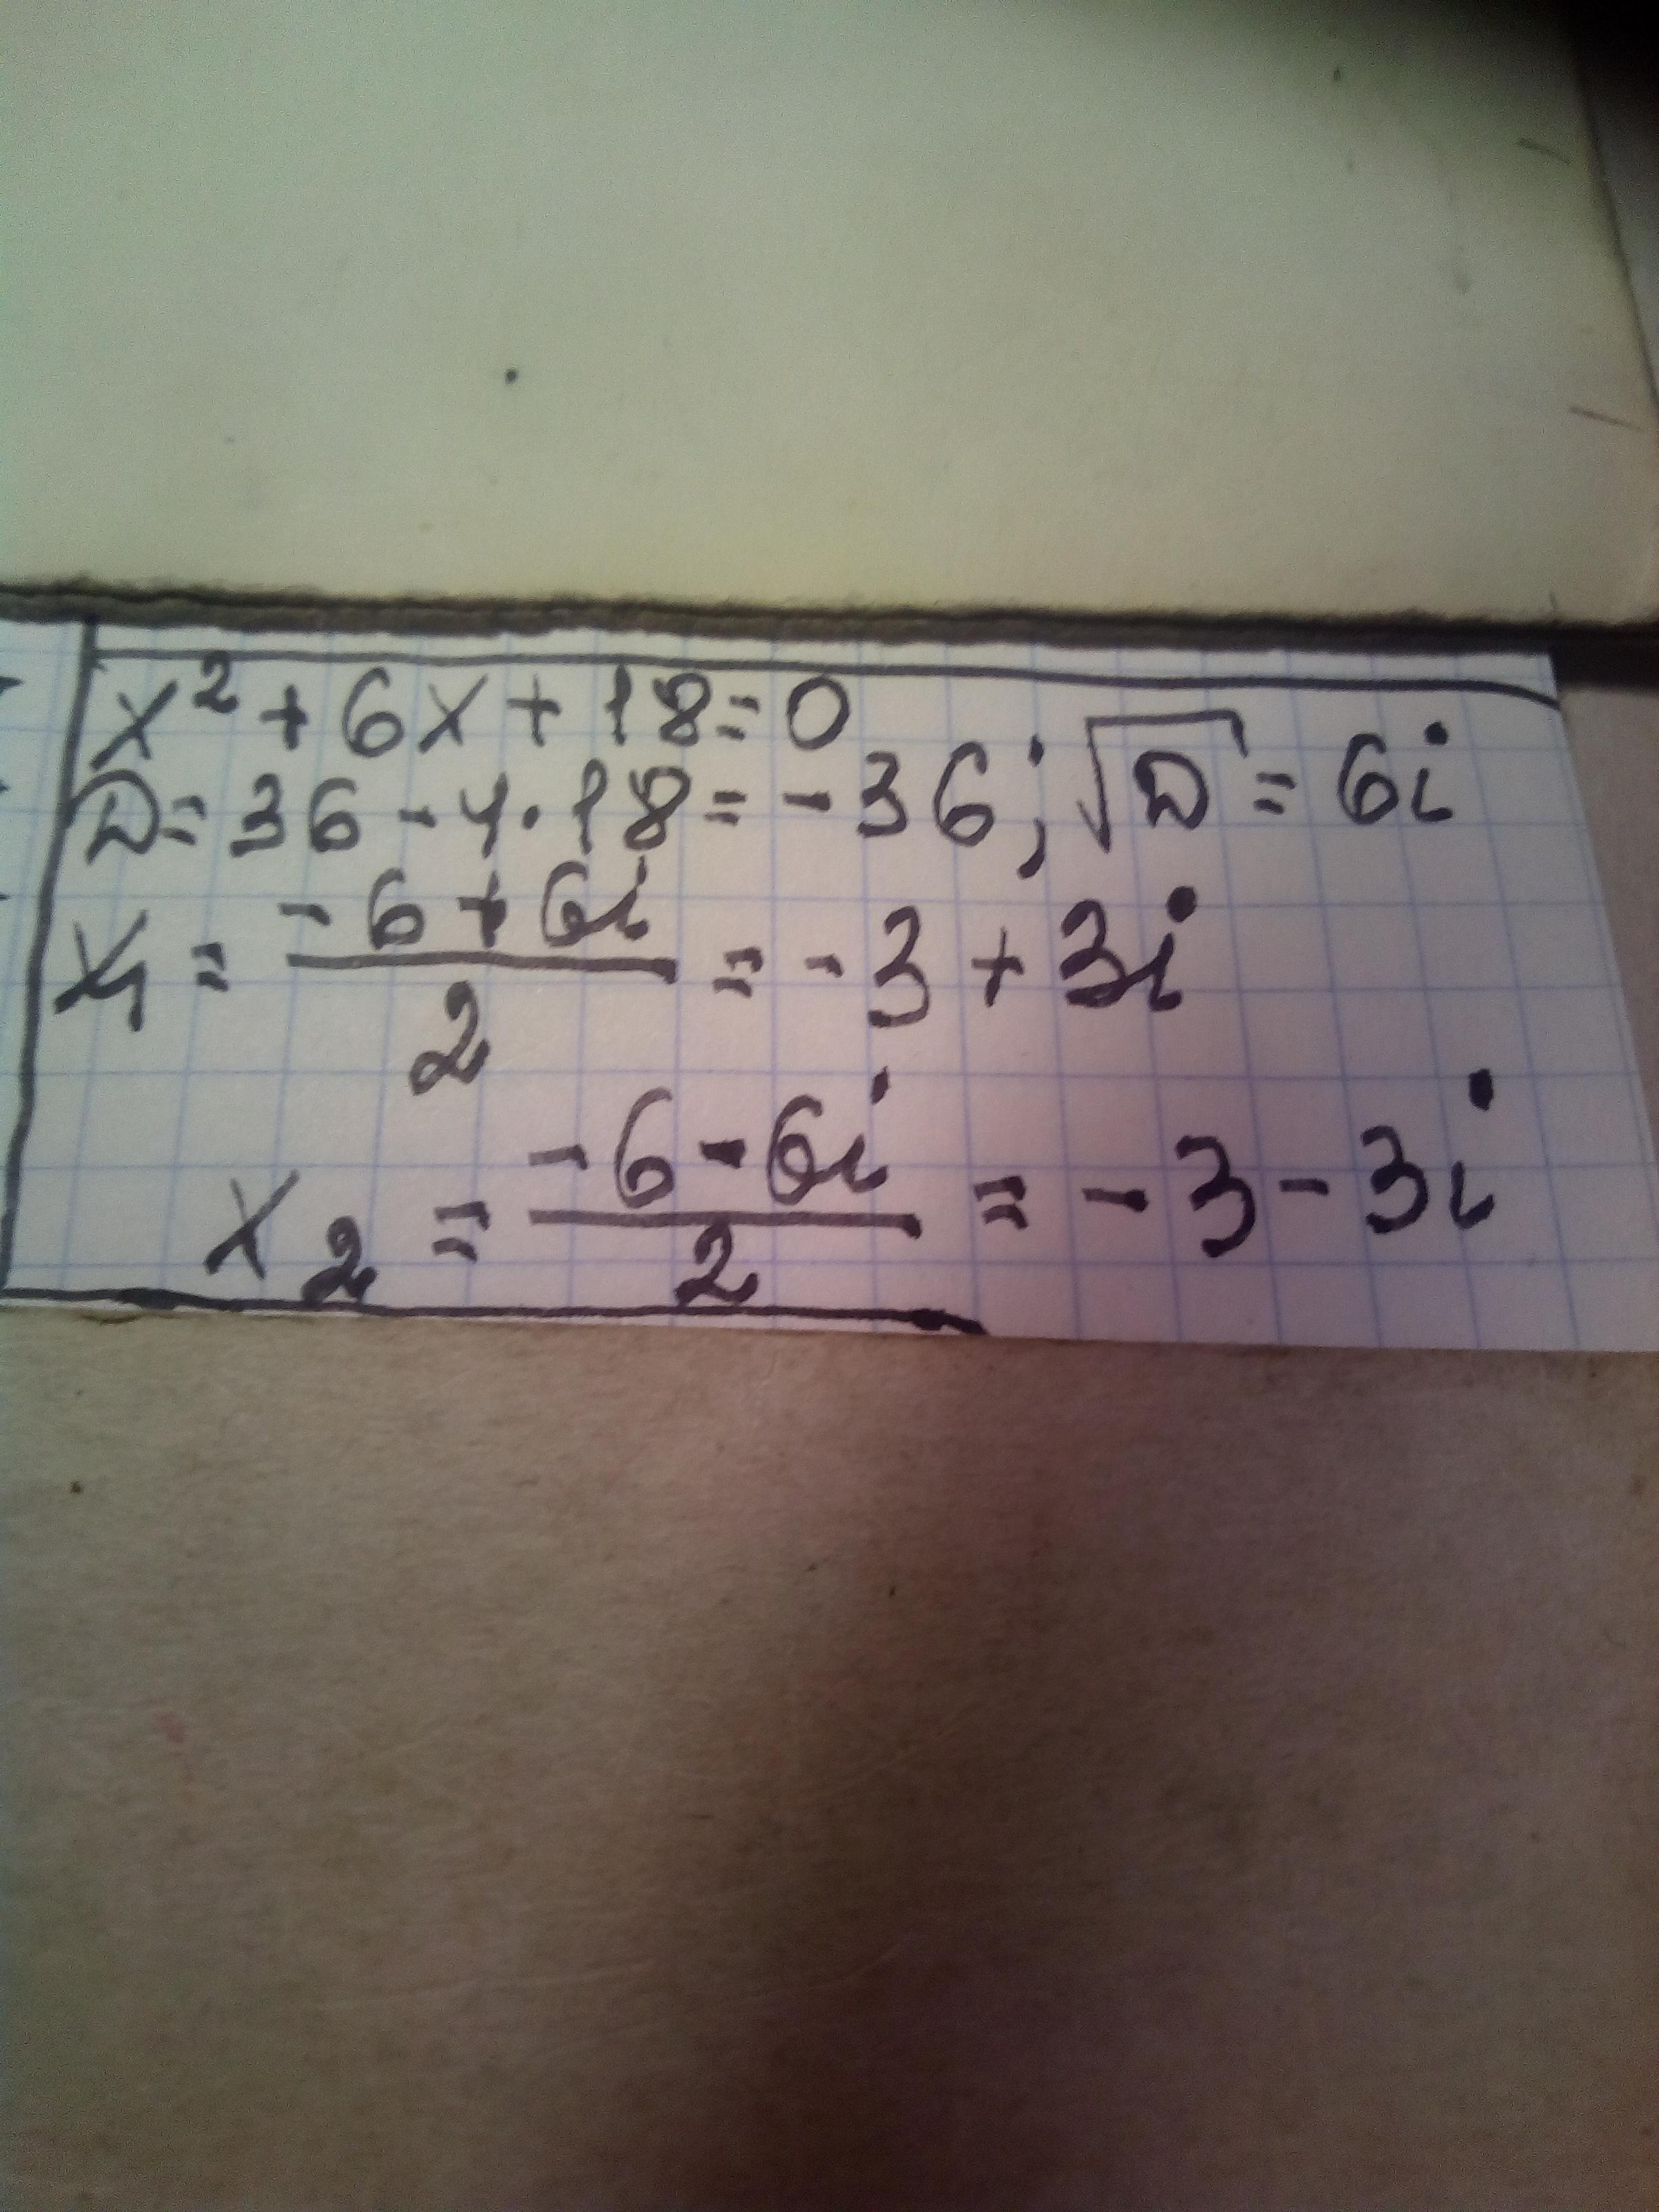 x² + 6x + 18 = 0
D = 36 - 4 · 18 = - 36; √D = 6i
x₁ = (-6 + 6i)/2 = - 3 + 3i
x₂ = (-6 - 6i)/2 = - 3 - 3i